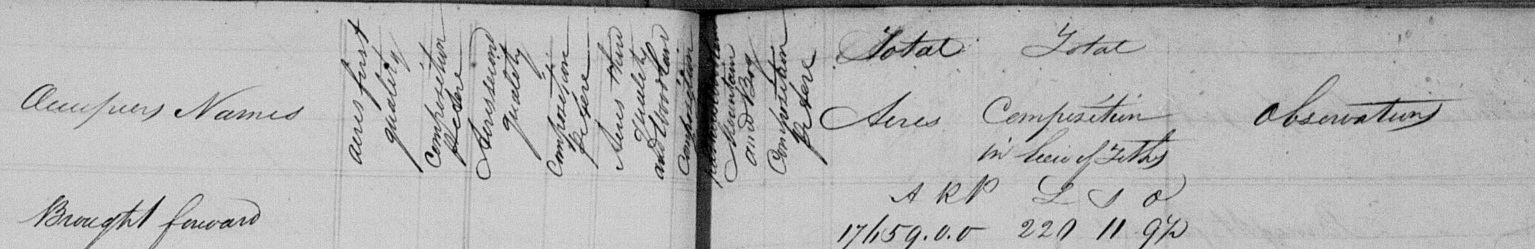 Occupiers Names
acres first
quality
Composition
Pr Acre
Acres second
quality
Composition
Pr Acre
Acres third
Quality
and Woodland
Composition
Mountain
and Bog
Composition
Pr Acre
Total
Acres
Total
Composition
in lieu of Tithes
Observations
A R P L S D
Brought forward
0.0 11 9½